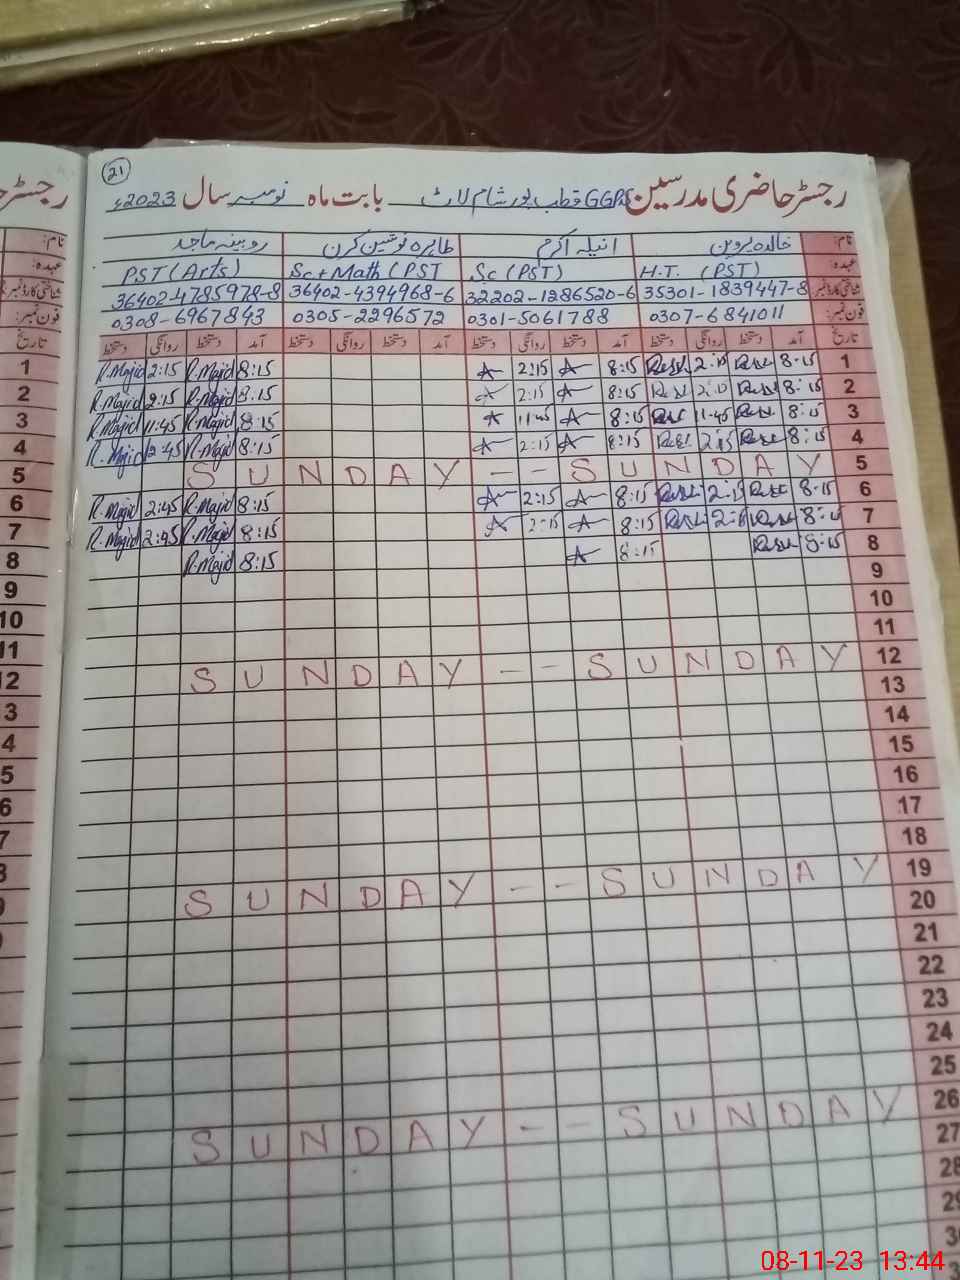 21
رجسٹر حاضری مدرسین GGPS قطب پور شام لاٹ بابت ماہ نومبر سال 2023ء
نام: خالدہ پروین انیلہ اکرم طاہرہ نوشین کرن روبینہ ماجد
عہدہ: H.T. (PST) Sc (PST) Sc+Math (PST PST (Arts)
شناختی کارڈ نمبر: 35301-1839447-8 32202-1286520-6 36402-4394968-6 36402-4785978-8
فون نمبر: 0307-6841011 0301-5061788 0305-2296572 0308-6967843
تاریخ آمد دستخط روانگی دستخط آمد دستخط روانگی دستخط آمد دستخط روانگی دستخط آمد دستخط روانگی دستخط
1 8:15 8:15 2:15 8:15 R.Majid 2:15 R.Majid
2 8:15 8:15 2:15 8:15 R.Majid 2:15 R.Majid
3 8:15 11:45 8:15 11:45 8:15 R.Majid 11:45 R.Majid
4 8:15 2:15 8:15 2:15 8:15 R.Majid 2:45 R.Majid
5 SUNDAY -- SUNDAY
6 8:15 2:15 8:15 2:15 8:15 R.Majid 2:45 R.Majid
7 8:15 2:15 8:15 R.Majid 2:45 R.Majid
8 8:15 8:15 8:15 R.Majid
9
10
11
12 SUNDAY -- SUNDAY
13
14
15
16
17
18
19 SUNDAY -- SUNDAY
20
21
22
23
24
25
26 SUNDAY -- SUNDAY
27
28
08-11-23 13:44